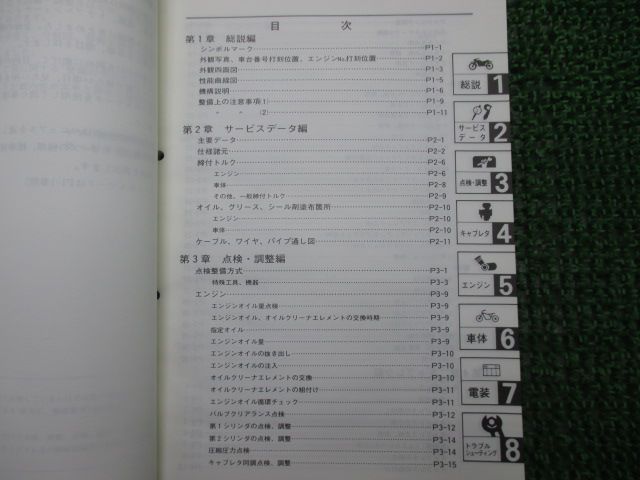 目　次
第1章　総説編
シンボルマーク P1-1
外観写真、車台番号打刻位置、エンジンNo.打刻位置 P1-2
外観四面図 P1-3
性能曲線図 P1-5
機構説明 P1-6
整備上の注意事項(1) P1-9
〃　〃　(2) P1-11
第2章　サービスデータ編
主要データ P2-1
仕様諸元 P2-2
締付トルク P2-6
エンジン P2-6
車体 P2-8
その他、一般締付トルク P2-9
オイル、グリース、シール剤塗布箇所 P2-10
エンジン P2-10
車体 P2-10
ケーブル、ワイヤ、パイプ通し図 P2-11
第3章　点検・調整編
点検整備方式 P3-1
特殊工具、機器 P3-3
エンジン P3-9
エンジンオイル量点検 P3-9
エンジンオイル、オイルクリーナエレメントの交換時期 P3-9
指定オイル P3-9
エンジンオイル量 P3-9
エンジンオイルの抜き出し P3-10
エンジンオイルの注入 P3-10
オイルクリーナエレメントの交換 P3-10
オイルクリーナエレメントの組付け P3-11
エンジンオイル循環チェック P3-11
バルブクリアランス点検 P3-12
第1シリンダの点検、調整 P3-12
第2シリンダの点検、調整 P3-14
圧縮圧力点検 P3-14
キャブレタ同調点検、調整 P3-15
総説 1
サービスデータ 2
点検・調整 3
キャブレタ 4
エンジン 5
車体 6
電装 7
トラブルシューティング 8